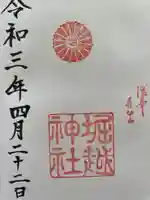 令和三年四月二十二日
堀越
神社